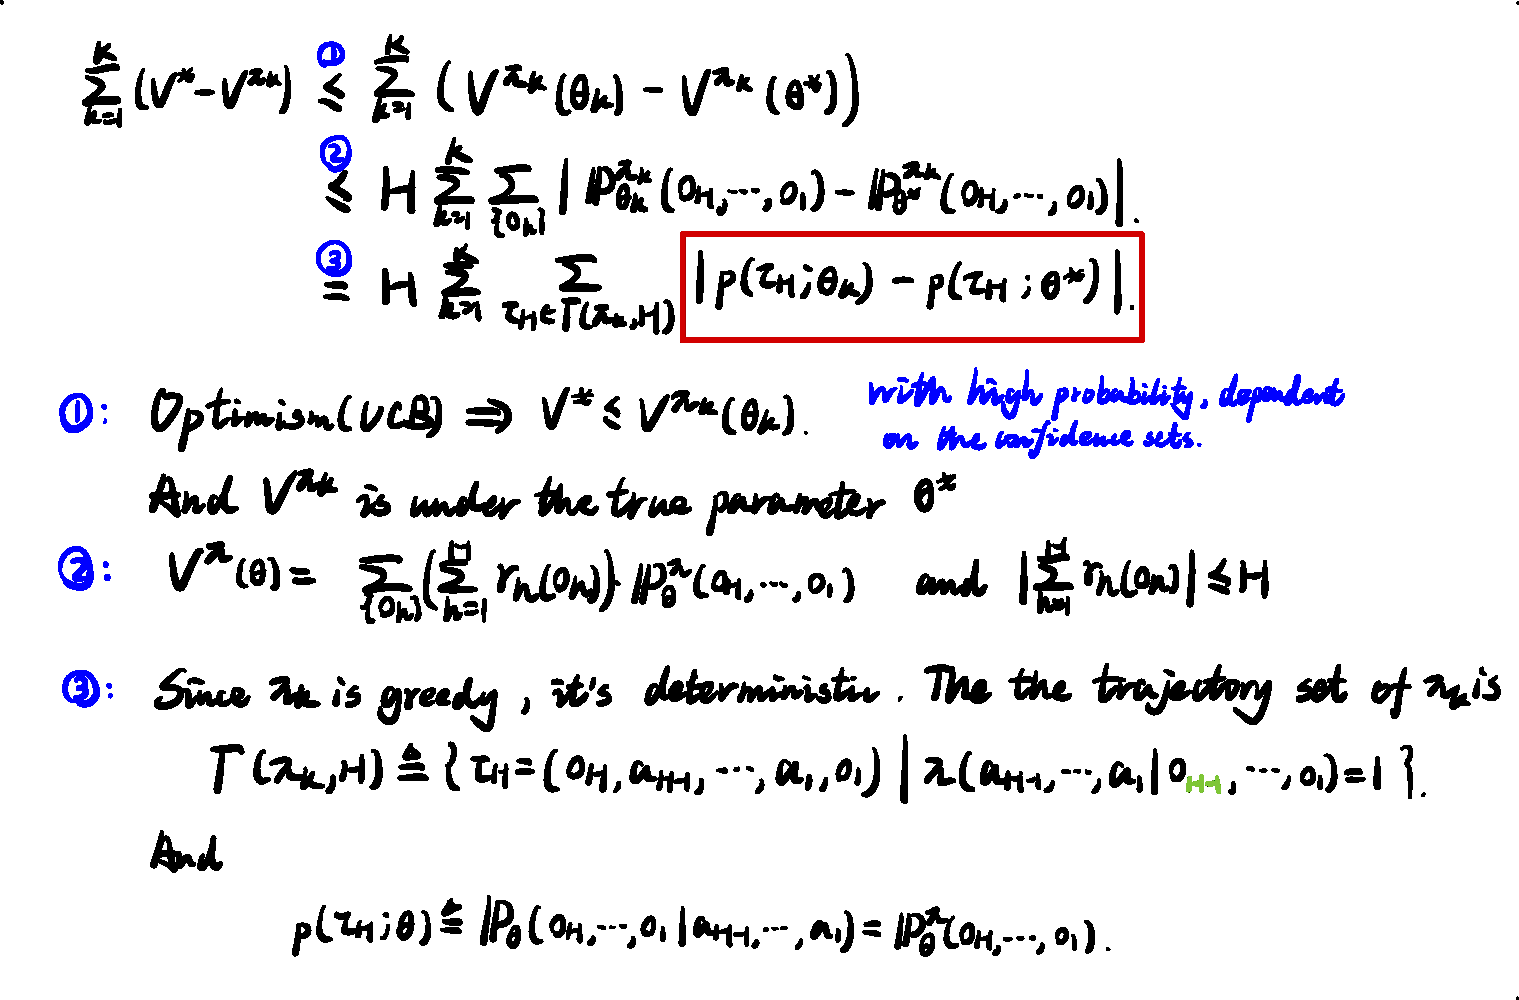 ∑_{k=1}^{K} (V* - V^{πk}) ①≤ ∑_{k=1}^{K} ( V^{πk}(θk) - V^{πk}(θ*))
②≤ H ∑_{k=1}^{K} ∑_{{oh}} | ℙ_{θk}^{πk}(oH,⋯,o1) - ℙ_{θ*}^{πk}(oH,⋯,o1) |.
③= H ∑_{k=1}^{K} ∑_{τH∈Γ(πk,H)} | p(τH;θk) - p(τH;θ*) |.
①: Optimism(UCB) ⇒ V* ≤ V^{πk}(θk). with high probability, dependent
on the confidence sets.
And V^{πk} is under the true parameter θ*
②: V^π(θ) = ∑_{{oh}} (∑_{h=1}^{H} rh(oh)) ℙ_θ^π(oH,⋯,o1) and |∑_{h=1}^{H} rh(oh)| ≤ H
③: Since πk is greedy, it's deterministic. The the trajectory set of πk is
Γ(πk,H) ≜ { τH=(oH,aH-1,⋯,a1,o1) | π(aH-1,⋯,a1|oH-1,⋯,o1)=1 }.
And
p(τH;θ) ≜ ℙθ(oH,⋯,o1|aH-1,⋯,a1) = ℙ_θ^π(oH,⋯,o1).